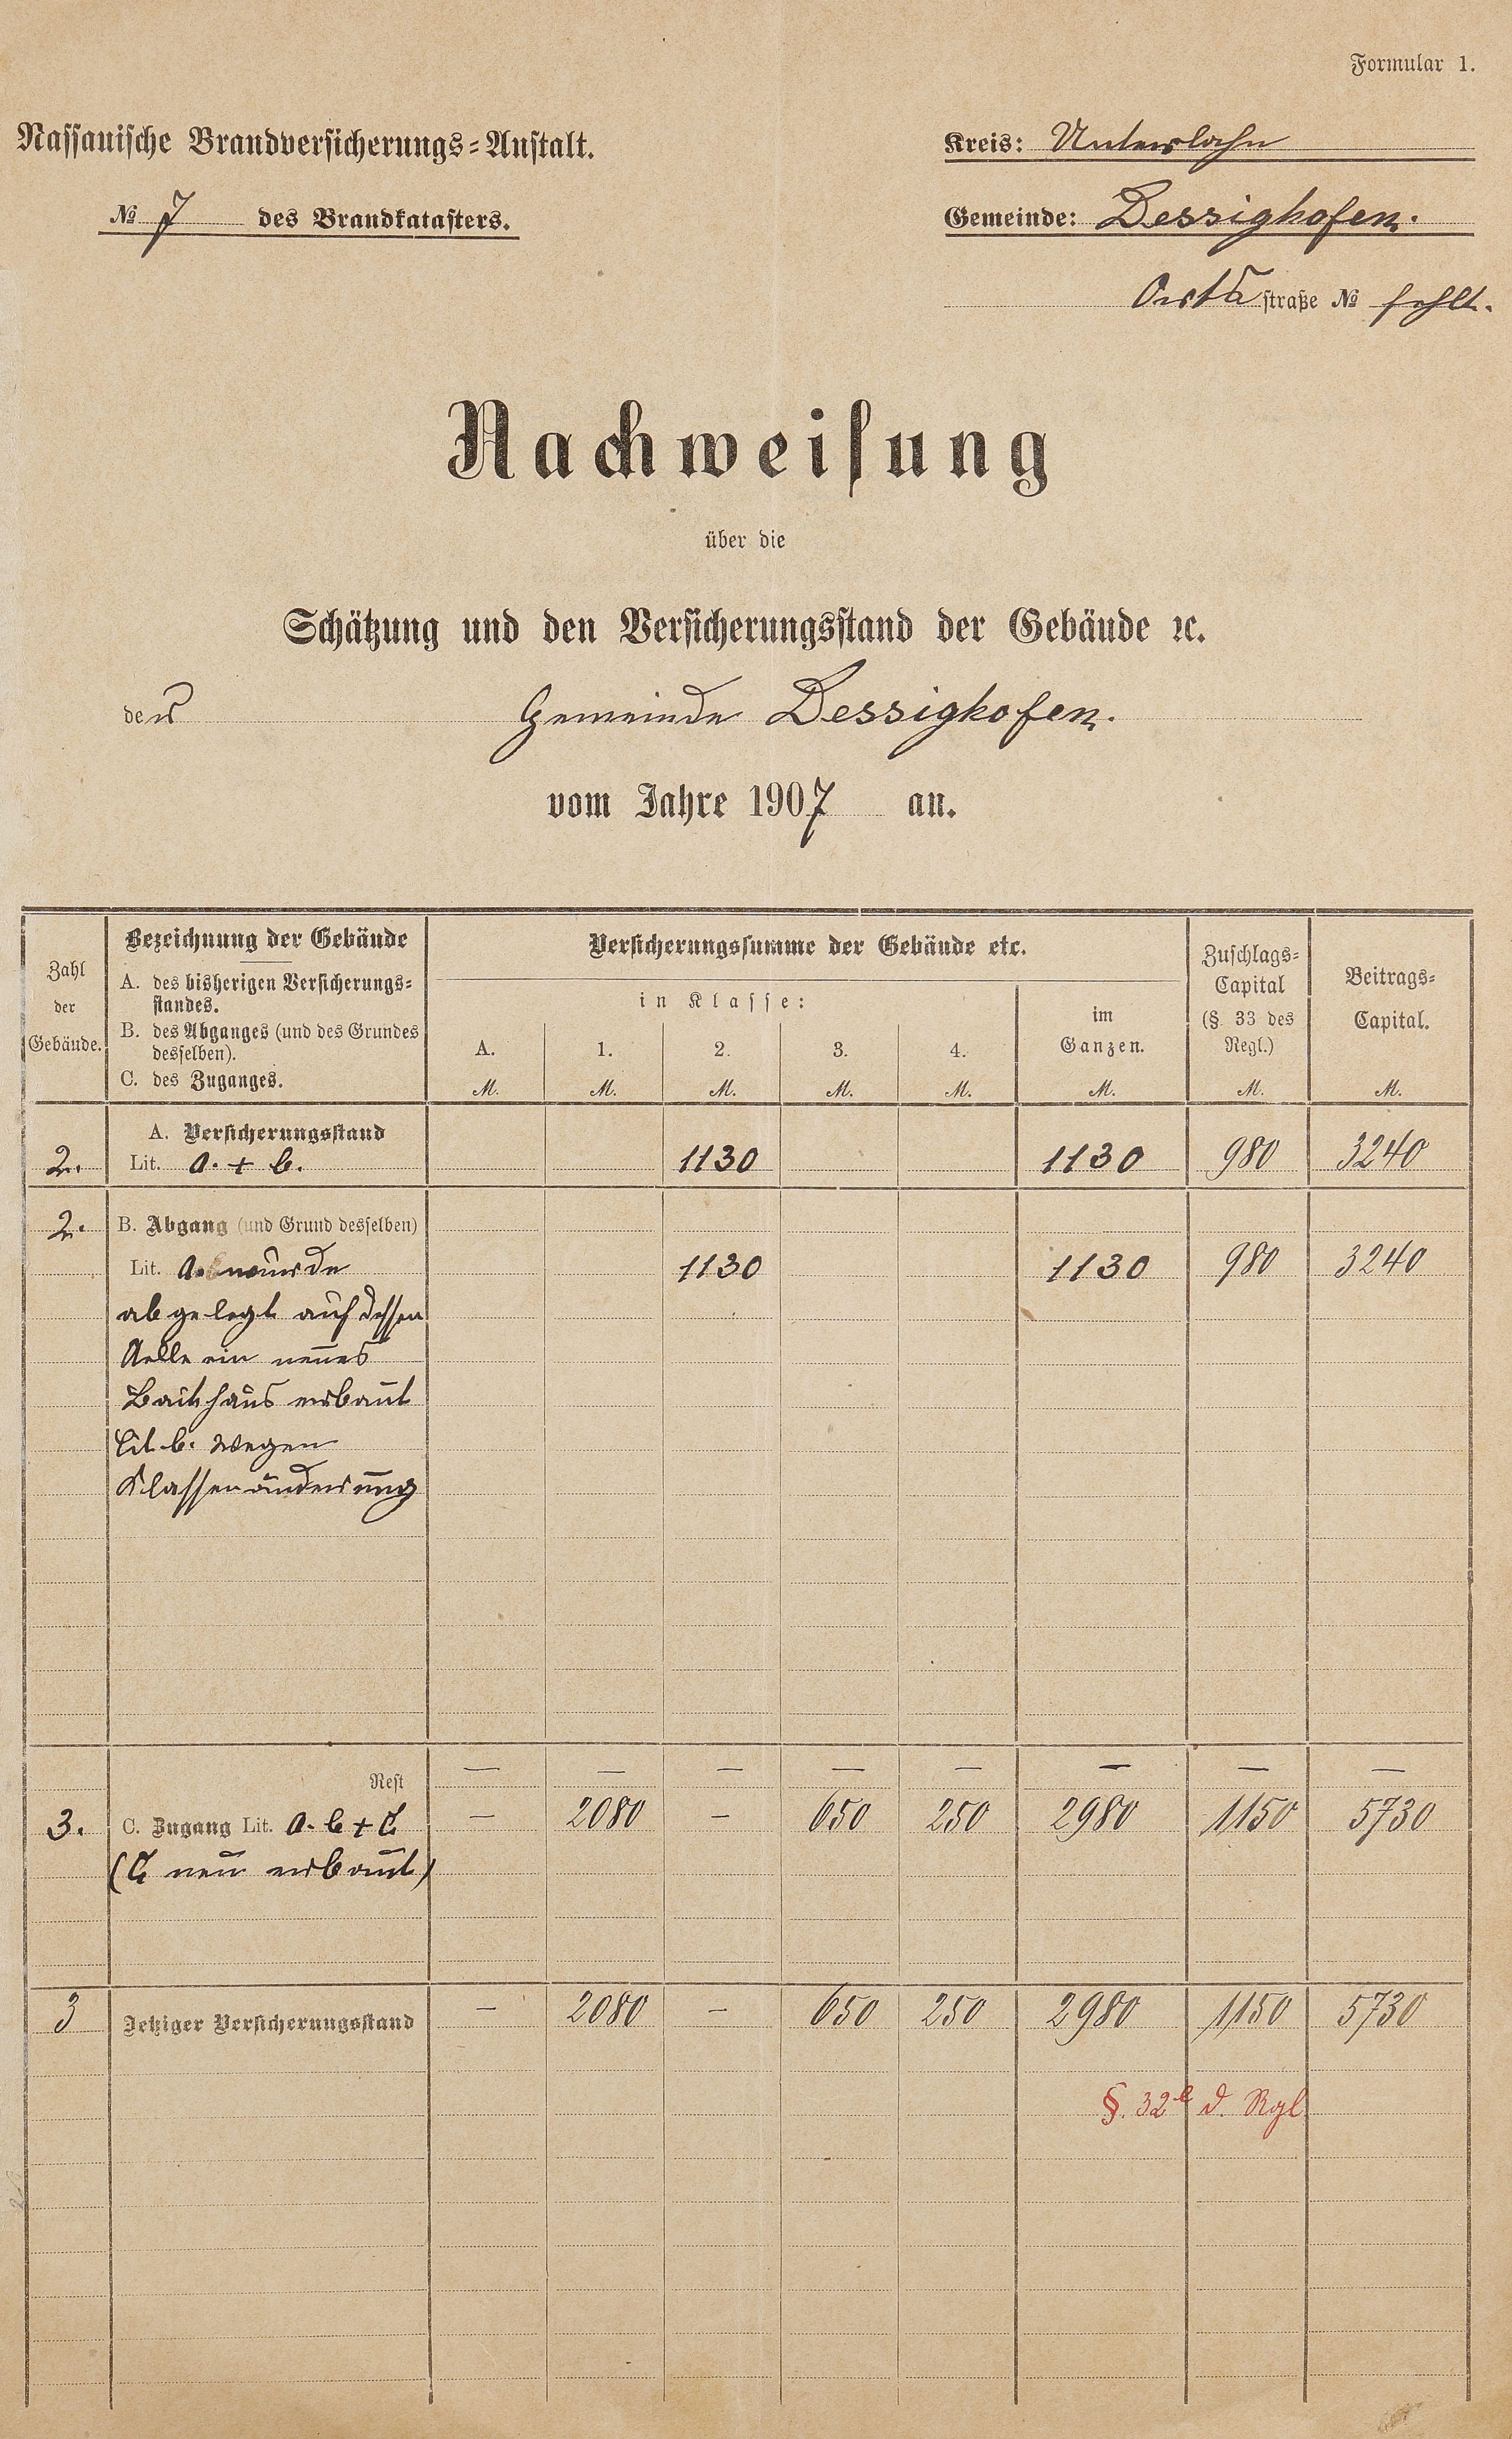 Formular 1.
Nassauische Brandversicherungs-Anstalt.
Kreis: Unterlahn
№ 7 des Brandkatasters.
Gemeinde: Dessighofen.
Orts straße № fehlt.
Nachweisung
über die
Schätzung und den Versicherungsstand der Gebäude ꝛc.
der Gemeinde Dessighofen.
vom Jahre 1907 an.
Zahl der Gebäude.
Bezeichnung der Gebäude
A. des bisherigen Versicherungs-
standes.
B. des Abganges (und des Grundes
desselben).
C. des Zuganges.
Versicherungssumme der Gebäude etc.
in Klasse:
A. 1. 2. 3. 4.
im
Ganzen.
Zuschlags-
Capital
(§. 33 des
Regl.)
Beitrags-
Capital.
M. M. M. M. M. M. M. M.
A. Versicherungsstand
2. Lit. a. + b. 1130 1130 980 3240
2. B. Abgang (und Grund desselben)
Lit. a. wurde 1130 1130 980 3240
abgelegt auf dessen
Stelle ein neues
Backhaus erbaut
Lit b. wegen
Klassenänderung
Rest — — — — — — — —
3. C. Zugang Lit. a. b + c — 2080 — 650 250 2980 1150 5730
(c neu erbaut)
3 Jetziger Versicherungsstand — 2080 — 650 250 2980 1150 5730
§. 32 d. Rgl.